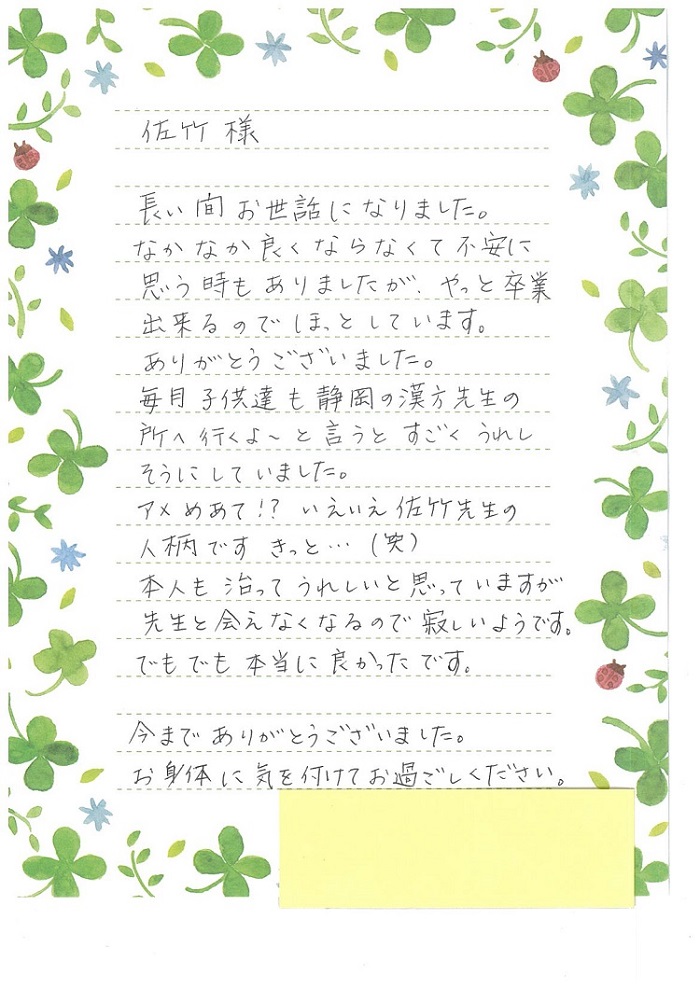 佐竹 様
長い間 お世話になりました。
なかなか良くならなくて不安に
思う時もありましたが、やっと卒業
出来るのでほっとしています。
ありがとうございました。
毎月子供達も静岡の漢方先生の
所へ行くよ〜と言うとすごくうれし
そうにしていました。
アメめあて!? いえいえ佐竹先生の
人柄です きっと… (笑)
本人も治ってうれしいと思っていますが
先生と会えなくなるので寂しいようです。
でもでも本当に良かったです。
今までありがとうございました。
お身体に気を付けてお過ごしください。